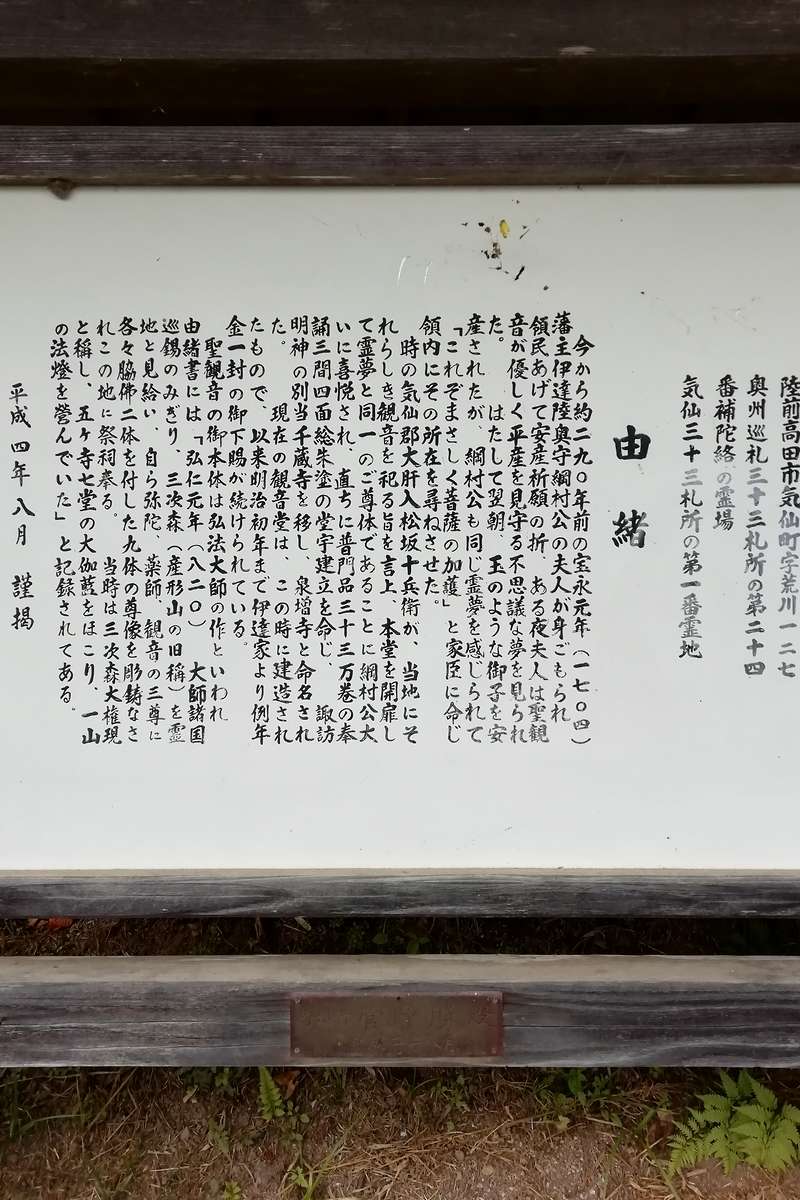 陸前高田市気仙町字荒川一二七
奥州巡礼三十三札所の第二十四
番補陀絡の霊場
気仙三十三札所の第一番霊地
由緒
今から約二九〇年前の宝永元年(一七〇四)
藩主伊達陸奥守綱村公の夫人が身ごもられ
領民あげて安産祈願の折、ある夜夫人は聖観
音が優しく平産を見守る不思議な夢を見られ
た。 はたして翌朝、玉のような御子を安
産されたが、綱村公も同じ霊夢を感じられて
「これぞまさしく菩薩の加護」と家臣に命じ
領内にその所在を尋ねさせた。
時の気仙郡大肝入松坂十兵衛が、当地にそ
れらしき観音を祀る旨を言上、本堂を開扉し
て霊夢と同一のご尊体であることに綱村公大
いに喜悦され、直ちに普門品三十三万巻の奉
誦三間四面総朱塗の堂宇建立を命じ、 諏訪
明神の別当千蔵寺を移し、泉増寺と命名され
た。 現在の観音堂は、この時に建造され
たもので、以来明治初年まで伊達家より例年
金一封の御下賜が続けられている。
聖観音の御本体は弘法大師の作といわれ
由緒書には「弘仁元年(八二〇) 大師諸国
巡錫のみぎり、三次森(産形山の旧称)を霊
地と見給い、自ら弥陀、薬師、観音の三尊に
各々脇佛二体を付した九体の尊像を彫鋳なさ
れこの地に祭祠奉る。 当時は三次森大権現
と稱し、五ヶ寺七堂の大伽藍をほこり、一山
の法燈を営んでいた」と記録されてある。
平成四年八月 謹掲